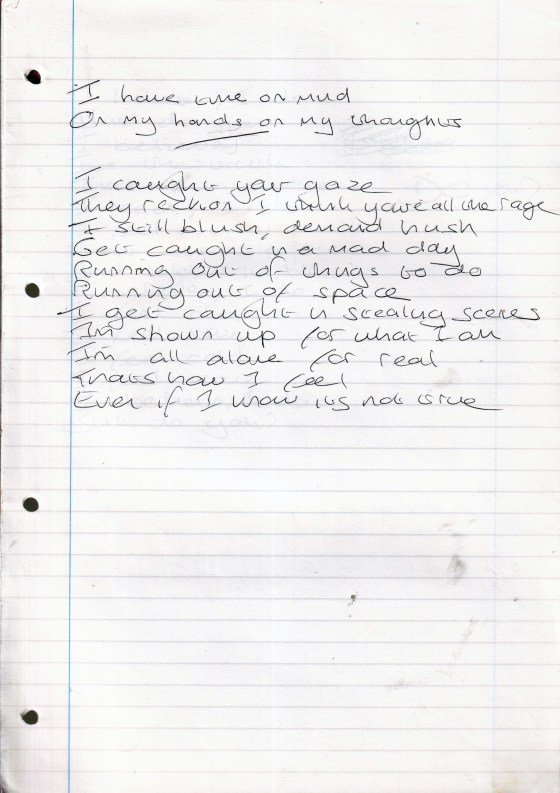 I have time on mud
On my hands on my thoughts
I caught your gaze
They reckon I think you're all the rage
I still blush, demand hush
Get caught in a mad day
Running out of things to do
Running out of space
I get caught in stealing scenes
I'm shown up for what I am
I'm all alone for real
Thats how I feel
Even if I know its not true